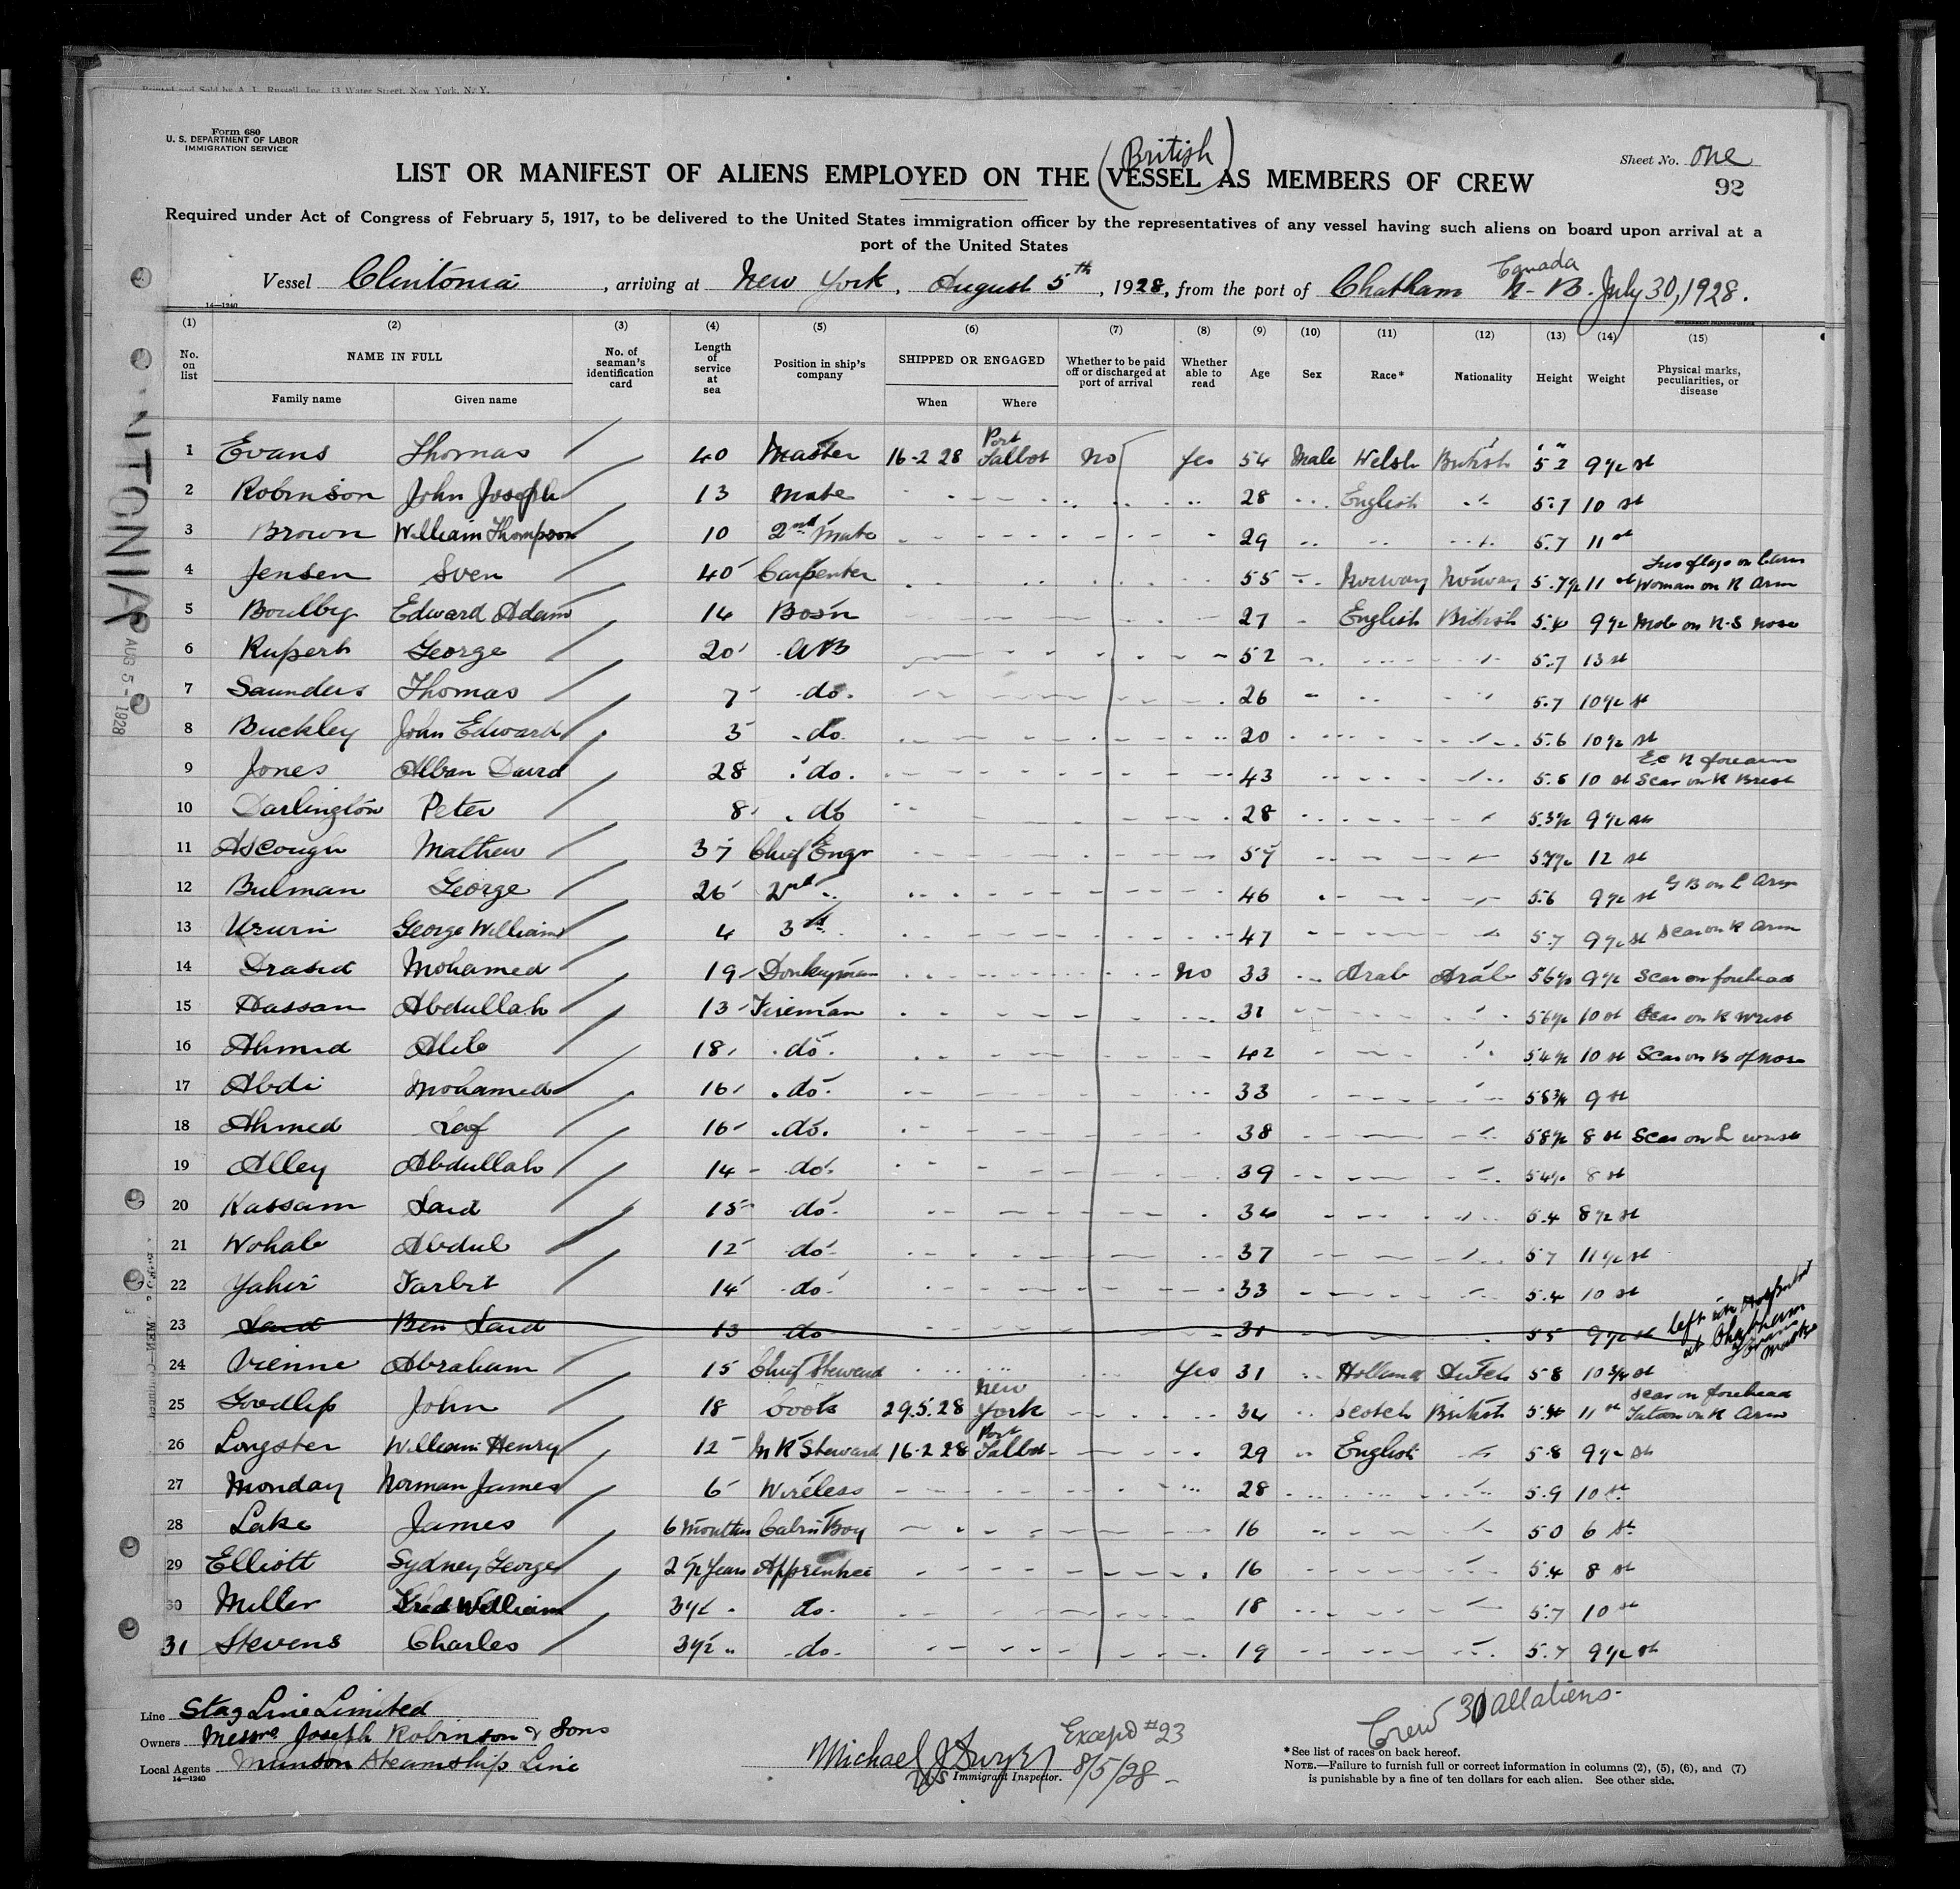 Printed and Sold by A. L. Russell, Inc., 13 Water Street, New York, N. Y.
Form 680
U. S. DEPARTMENT OF LABOR
IMMIGRATION SERVICE
Sheet No. One
92
(British)
LIST OR MANIFEST OF ALIENS EMPLOYED ON THE VESSEL AS MEMBERS OF CREW
Required under Act of Congress of February 5, 1917, to be delivered to the United States immigration officer by the representatives of any vessel having such aliens on board upon arrival at a
port of the United States
Vessel Clintonia, arriving at New York, August 5th, 1928, from the port of Chatham N-B. Canada July 30, 1928.
14—1240
(1) (2) (3) (4) (5) (6) (7) (8) (9) (10) (11) (12) (13) (14) (15)
No. on list NAME IN FULL No. of seaman's identification card Length of service at sea Position in ship's company SHIPPED OR ENGAGED Whether to be paid off or discharged at port of arrival Whether able to read Age Sex Race* Nationality Height Weight Physical marks, peculiarities, or disease
Family name Given name When Where
1 Evans Thomas 40 Master 16-2 28 Port Talbot No Yes 54 Male Welsh British 5 2 9 1/2 st
2 Robinson John Joseph 13 Mate 28 English 5.7 10 st
3 Brown William Thompson 10 2nd Mate 29 5.7 11 st
4 Jensen Sven 40 Carpenter 55 Norway Norway 5.7 1/2 11 st Woman on R Arm
5 Boulby Edward Adam 14 Bos'n 27 English British 5.4 9 1/2 Mole on R-S nose
6 Rupert George 20 AB 52 5.7 13 st
7 Saunders Thomas 7 do. 26 5.7 10 1/2 st
8 Buckley John Edward 3 do. 20 5.6 10 1/2 st
9 Jones Alban David 28 do. 43 5.6 10 st R forearm Scar on R Brest
10 Darlington Peter 8 do 28 5.3 1/2 9 1/2 st
11 Ascough Mathew 37 Chief Engr 57 5 7 1/2 12 st
12 Bulman George 26 2nd 46 5.6 9 1/2 st G B on L Arm
13 Urwin George William 4 3rd 47 5.7 9 1/2 st Scar on R Arm
14 Mohamed 19 Donkeyman No 33 Arab Arab 5 6 1/2 9 1/2 Scar on forehead
15 Hassan Abdullah 13 Fireman 31 5 6 1/2 10 st Scar on R wrist
16 Ahmed Aleb 18 do. 42 5 4 1/2 10 st Scar on B of nose
17 Abdi Mohamed 16 do. 33 5 8 3/4 9 st
18 Ahmed 16 do. 38 5 8 1/2 8 st Scar on L wrist
19 Alley Abdullah 14 do. 39 5 4 1/2 8 st
20 Kassam Said 15 do. 34 5.4 8 1/2 st
21 Wohab Abdul 12 do. 37 5 7 11 1/2 st
22 Yahir 14 do. 33 5.4 10 st
23 Said Ben Said 13 do 31 5 5 9 1/2 st left in Hospital at Chatham
24 Vienne Abraham 15 Chief Steward Yes 31 Holland Dutch 5 8 10 3/4 st
25 Goodlip John 18 Cook 29.5.28 New York 34 Scotch British 11 st Scar on forehead Tatoo on R Arm
26 Longster William Henry 12 M R Steward 16-2 28 Port Talbot 29 English 5.8 9 1/2 st
27 Monday Norman James 6 Wireless 28 5.9 10 st
28 Lake James 6 months Cabin Boy 16 5 0 6 st
29 Elliott Sydney George 2 1/2 years Apprentice 16 5.4 8 st
30 Miller Fred William 3 1/2 do. 18 5.7 10 st
31 Stevens Charles 3 1/2 do. 19 5.7 9 1/2 st
NTONIA
AUG 5-1928
Line Stag Line Limited
Owners Messrs Joseph Robinson & Sons
Local Agents Munson Steamship Line
14—1240
Michael J
Immigrant Inspector.
Except #23
8/5/28
Crew 30 all aliens.
*See list of races on back hereof.
NOTE.—Failure to furnish full or correct information in columns (2), (5), (6), and (7)
is punishable by a fine of ten dollars for each alien. See other side.